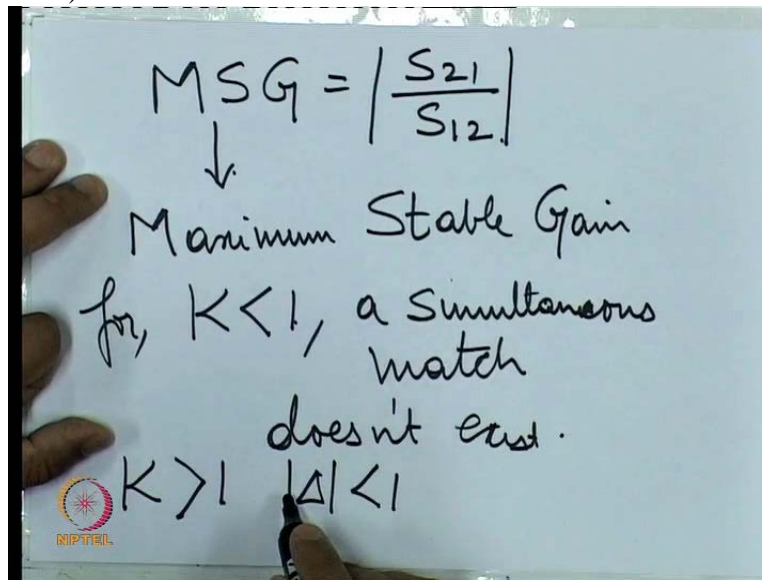 MSG = | S21 / S12 |
Maximum Stable Gain
for, K < 1, a simultaneous
match
doesn't exist.
K > 1 |Δ| < 1
NPTEL